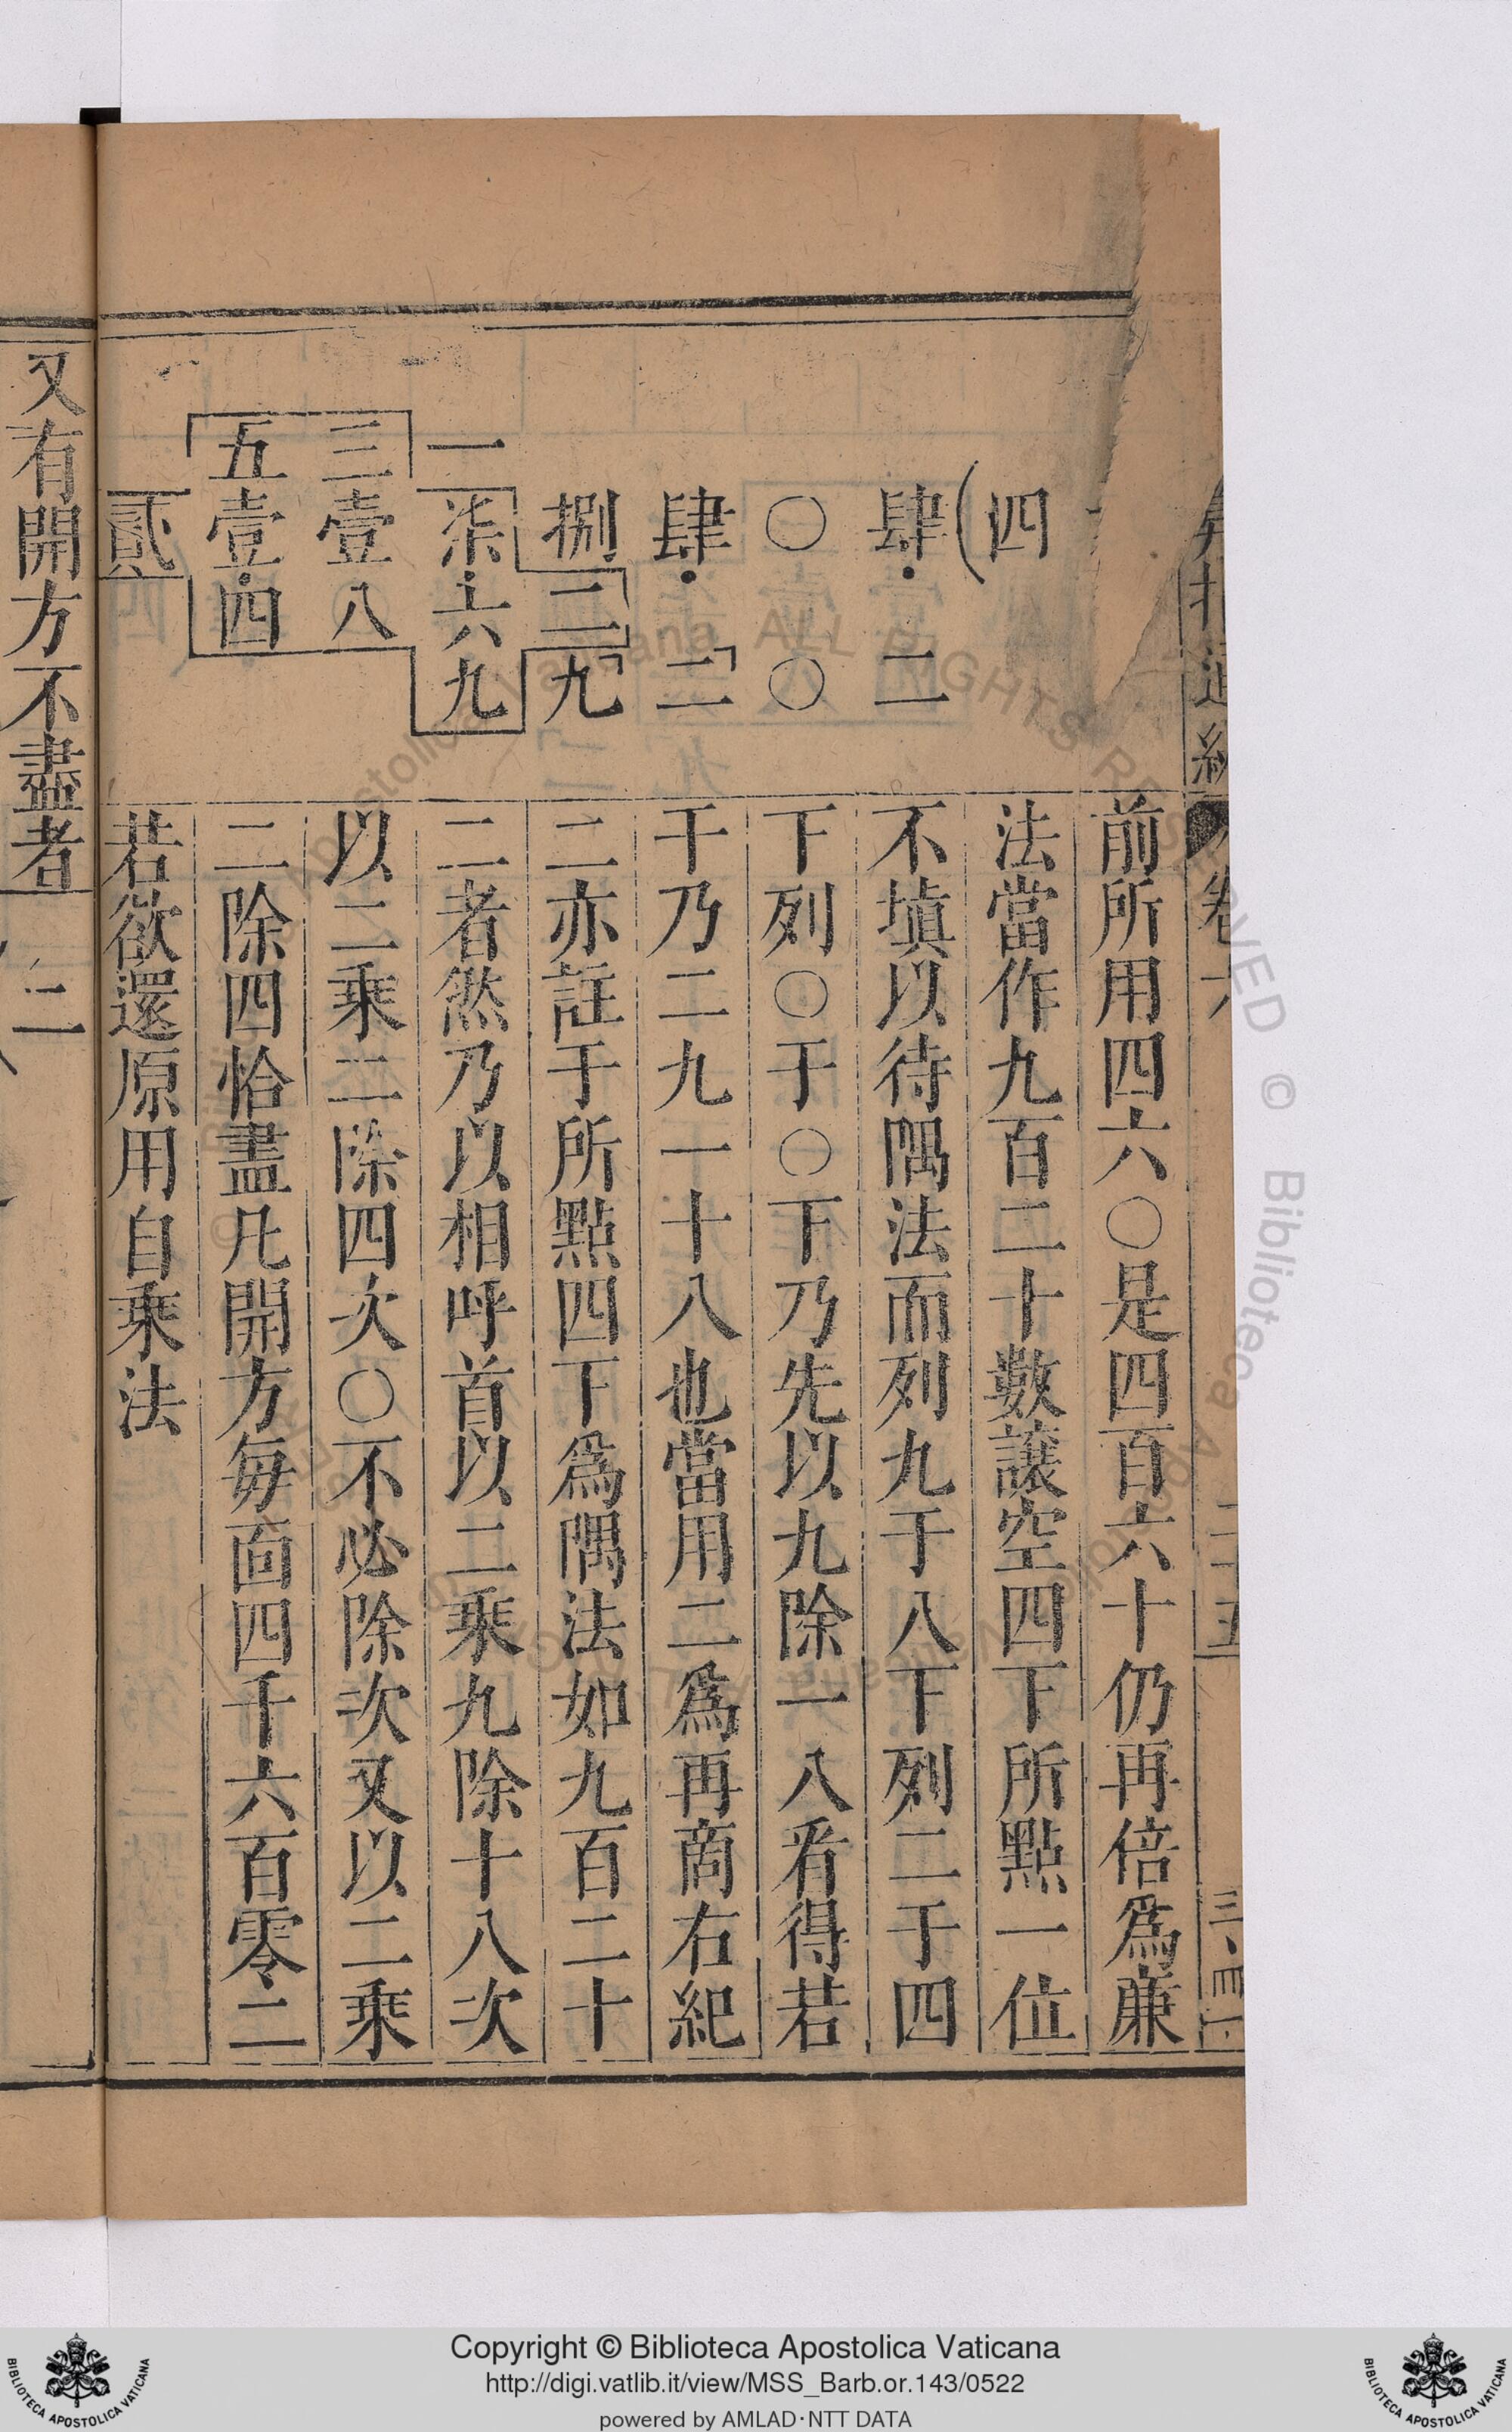 四
肆二
○○
肆二
捌二九
一柒六九
三壹八
五壹四
貳
前所用四六○是四百六十仍再倍爲廉
法當作九百二十數讓空四下所點一位
不塡以待隅法而列九于八下列二于四
下列○于○下乃先以九除一八看得若
干乃二九一十八也當用二爲再商右紀
二亦註于所點四下爲隅法如九百二十
二者然乃以相呼首以二乘九除十八次
以二乘二除四次○不必除次又以二乘
二除四恰盡凡開方每面四千六百零二
若欲還原用自乘法
又有開方不盡者
二
Copyright © Biblioteca Apostolica Vaticana
http://digi.vatlib.it/view/MSS_Barb.or.143/0522
powered by AMLAD·NTT DATA
BIBLIOTECA APOSTOLICA VATICANA
BIBLIOTECA APOSTOLICA VATICANA